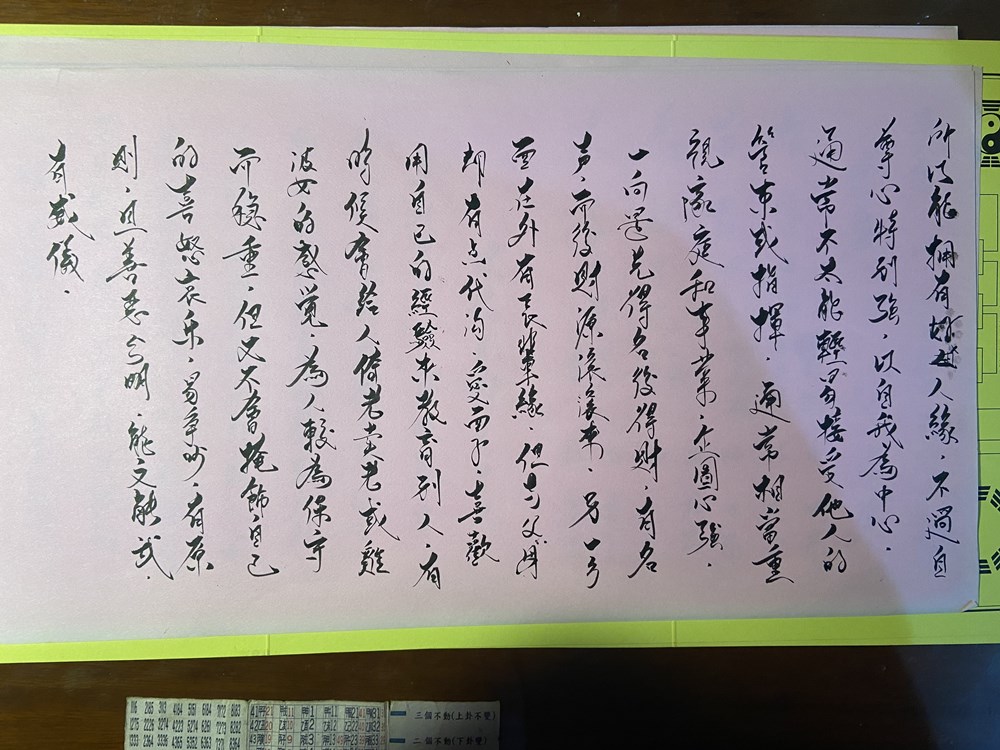 所以能擁有好人緣，不過自
尊心特别強，以自我為中心，
通常不太能輕易接受他人的
管束或指揮，通常相當重
視家庭和事業，企圖心強，
一向是先得名後得財，有名
声，而後財源滾滾來，另一方
面在外有長輩緣，但与父母
却有点代沟，喜歡
用自己的經驗來教育别人，有
時候會給人倚老卖老或雞
婆的感覺，為人較為保守
而穩重，但又不會掩飾自己
的喜怒哀乐，易爭吵，有原
則，且善惡分明，能文能武，
有威儀，
三個不動(上卦不變)
二個不動(下卦不變)